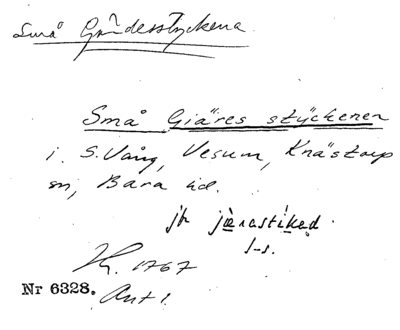 Små Gärdesstyckena
Små Giäres stÿckenen
i S. Vång, Vesum, Knästorp
sn, Bara hd.
jfr jærastikəd
l-s.
1767
Nr 6328. Art 1.